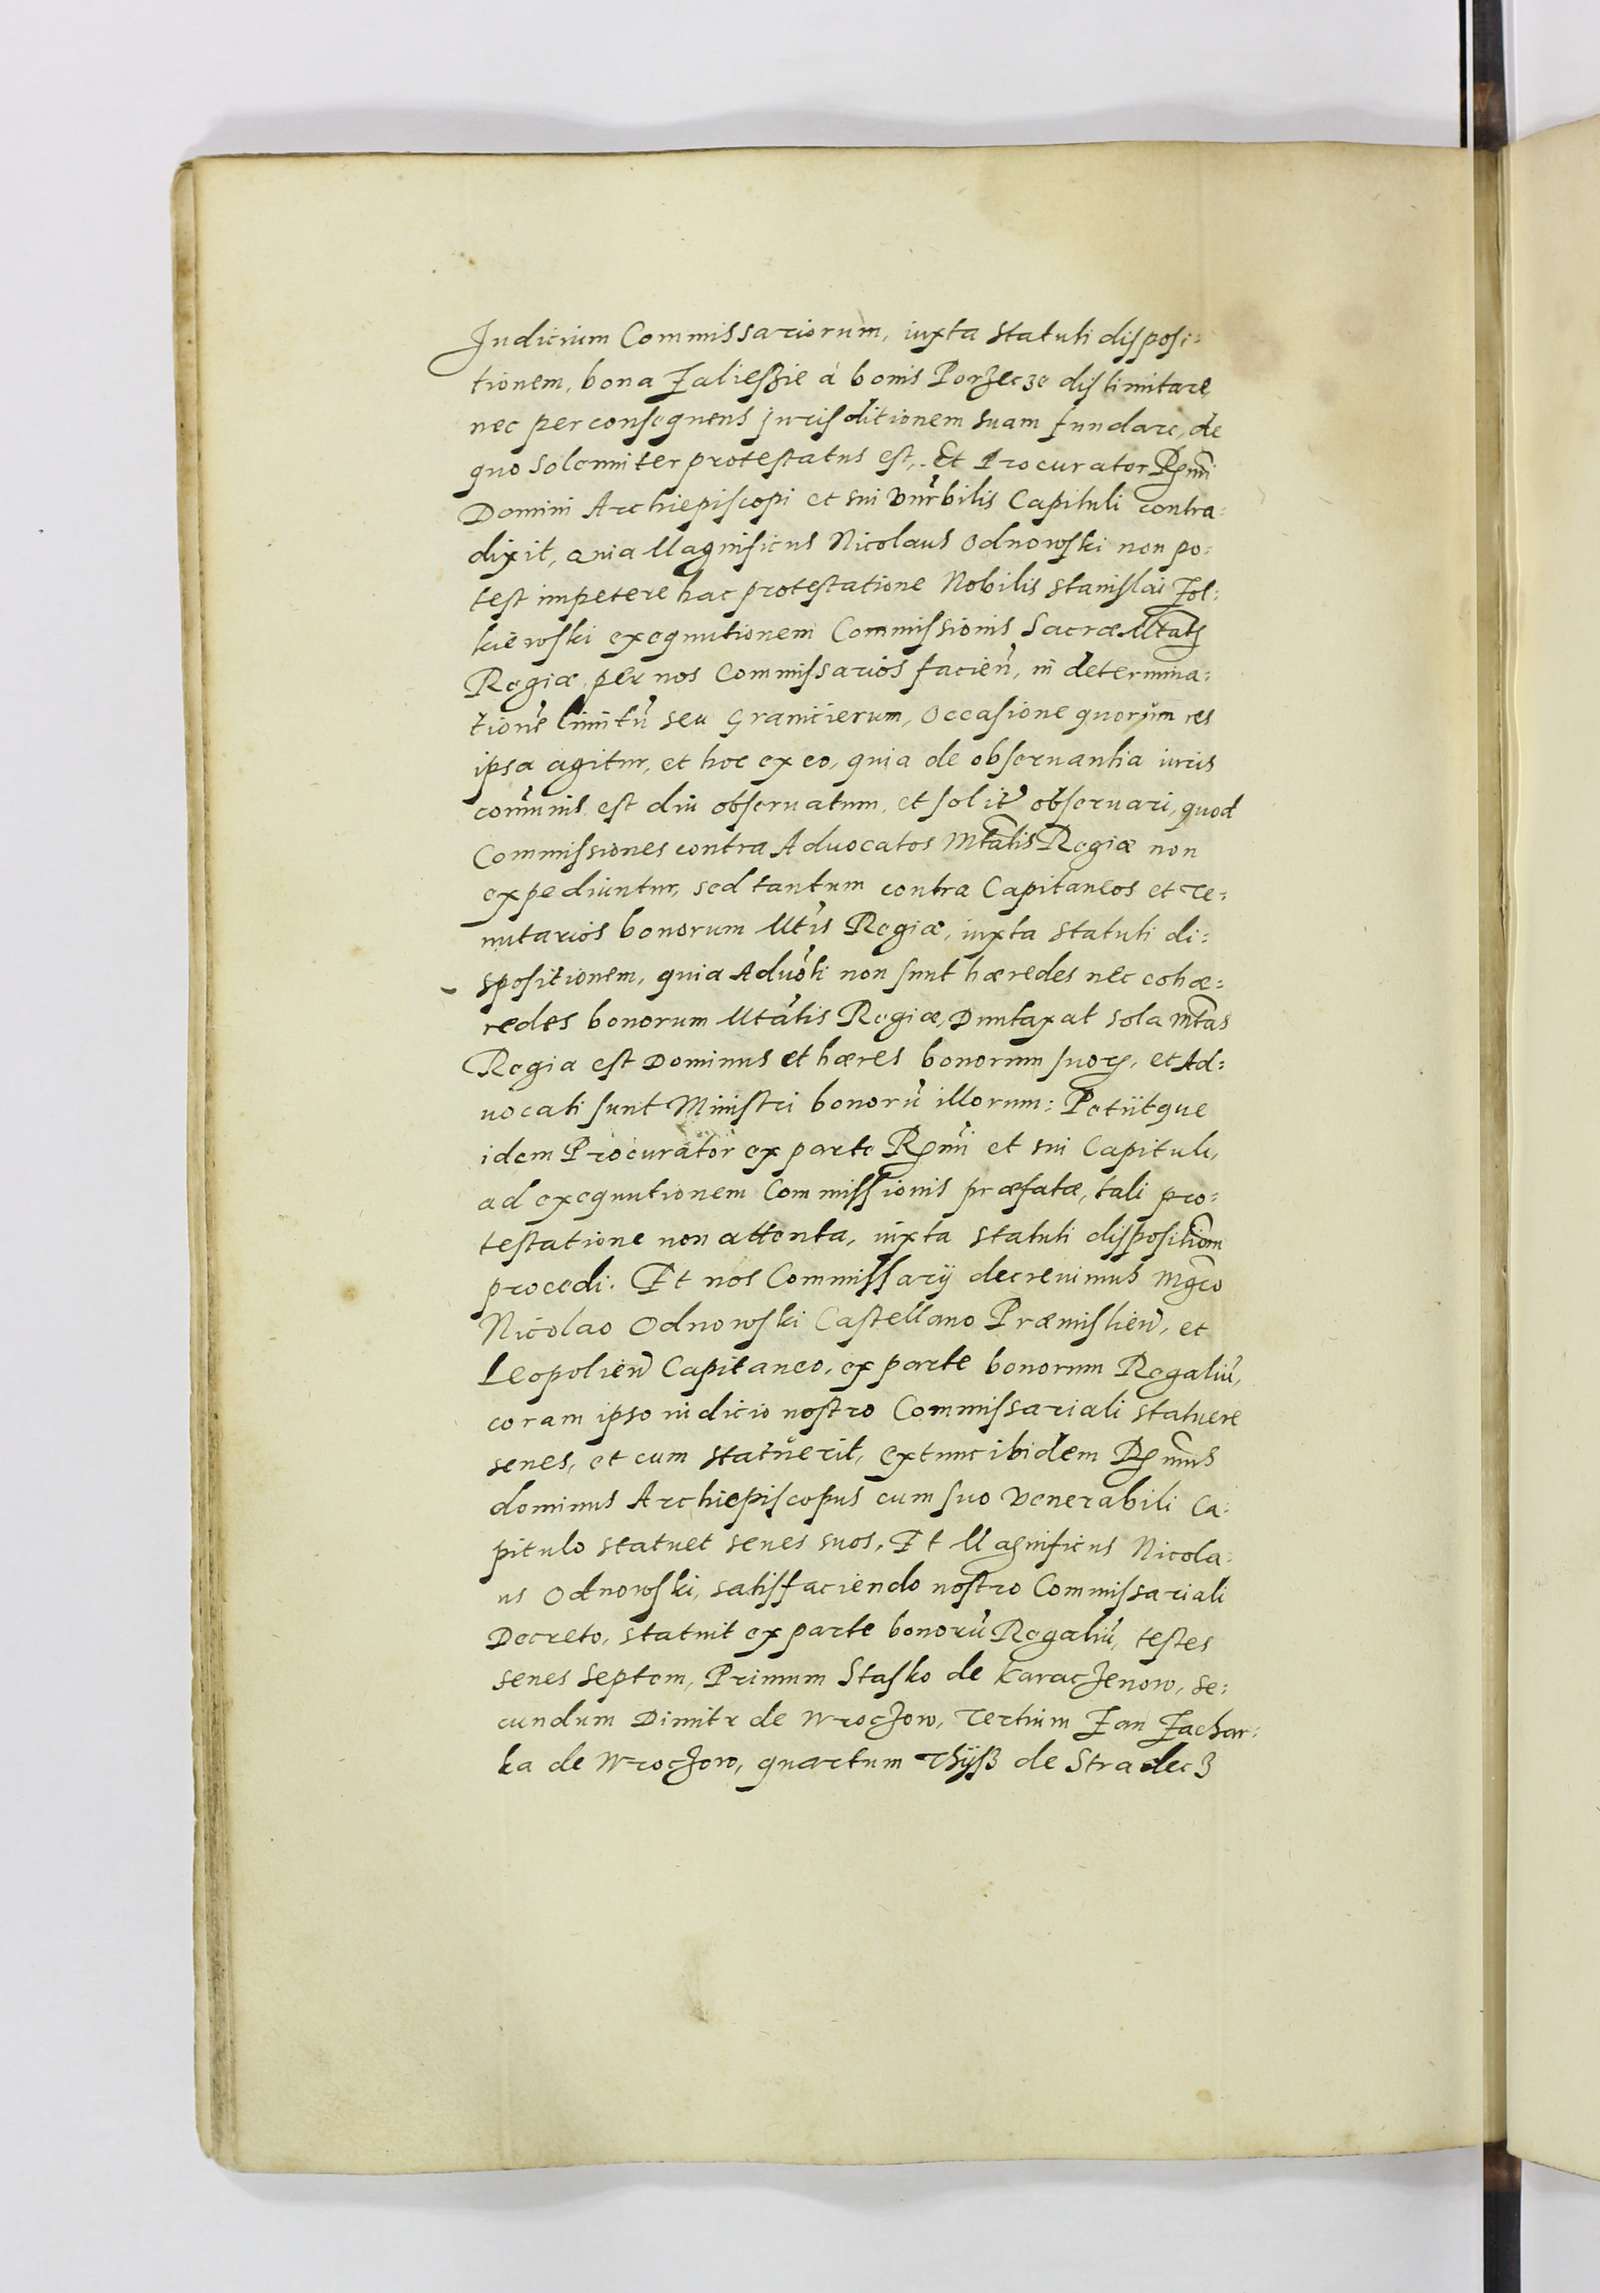 Judicium Commissariorum, iuxta Statuti disposi:
tionem, bona Zalieszie à bonis Porzecze dislimitare
nec per consequens jurisditionem suam fundare, de
quo solemniter protestatus est. Et Procurator Rmi
Domini Archiepiscopi et sui Vnrbilis Capituli contra:
dixit, Quia Magnificus Nicolaus Odnowski non po:
test impetere hac protestatione Nobilis Stanislai Zol:
kiewski exequutionem Commissionis Sacræ Mtatis
Regiæ per nos Commissarios facien, in determina:
tione limitū seu Granicierum, Occasione quorum res
ipsa agitur, et hoc ex eo, quia de obseruantia iuris
communis est diu obseruatum et solitū obseruari, quod
Commissiones contra Aduocatos Mtatis Regiæ non
expediuntur, sed tantum contra Capitaneos et Te:
nutarios bonorum Mtis Regiæ, iuxta Statuti di:
spositionem, quia Aduoti non sunt hæredes nec cohæ:
redes bonorum Mtatis Regiæ, Duntaxat sola Mtas
Regia est Dominus et hæres bonorum suorꝝ, et Ad:
uocati sunt Ministri bonorū illorum: Petiitque
idem Procurator ex parte Rmi et sui Capituli,
ad exequutionem Commissionis præfatæ, tali pro:
testatione non attenta, iuxta Statuti dispositiom
procedi. Et nos Commissarij decreuimus Mgco
Nicolao Odnowski Castellano Præmislien, et
Leopolien Capitaneo, ex parte bonorum Regaliū,
coram ipso iudicio nostro Commissariali statuere
senes, et cum statuerit, extunc ibidem Rmus
dominus Archiepiscopus cum suo Venerabili Ca:
pitulo statuet senes suos, Et Magnificus Nicola:
us Odnowski, satisfaciendo nostro Commissariali
Decreto, statuit ex parte bonorū Regaliū, testes
senes septem, Primum Stasko de Karaczenow, se:
cundum Dimitr de Wroczow, Tertium Zan Zachar:
ka de Wroczow, quartum Thyß de Stradecz